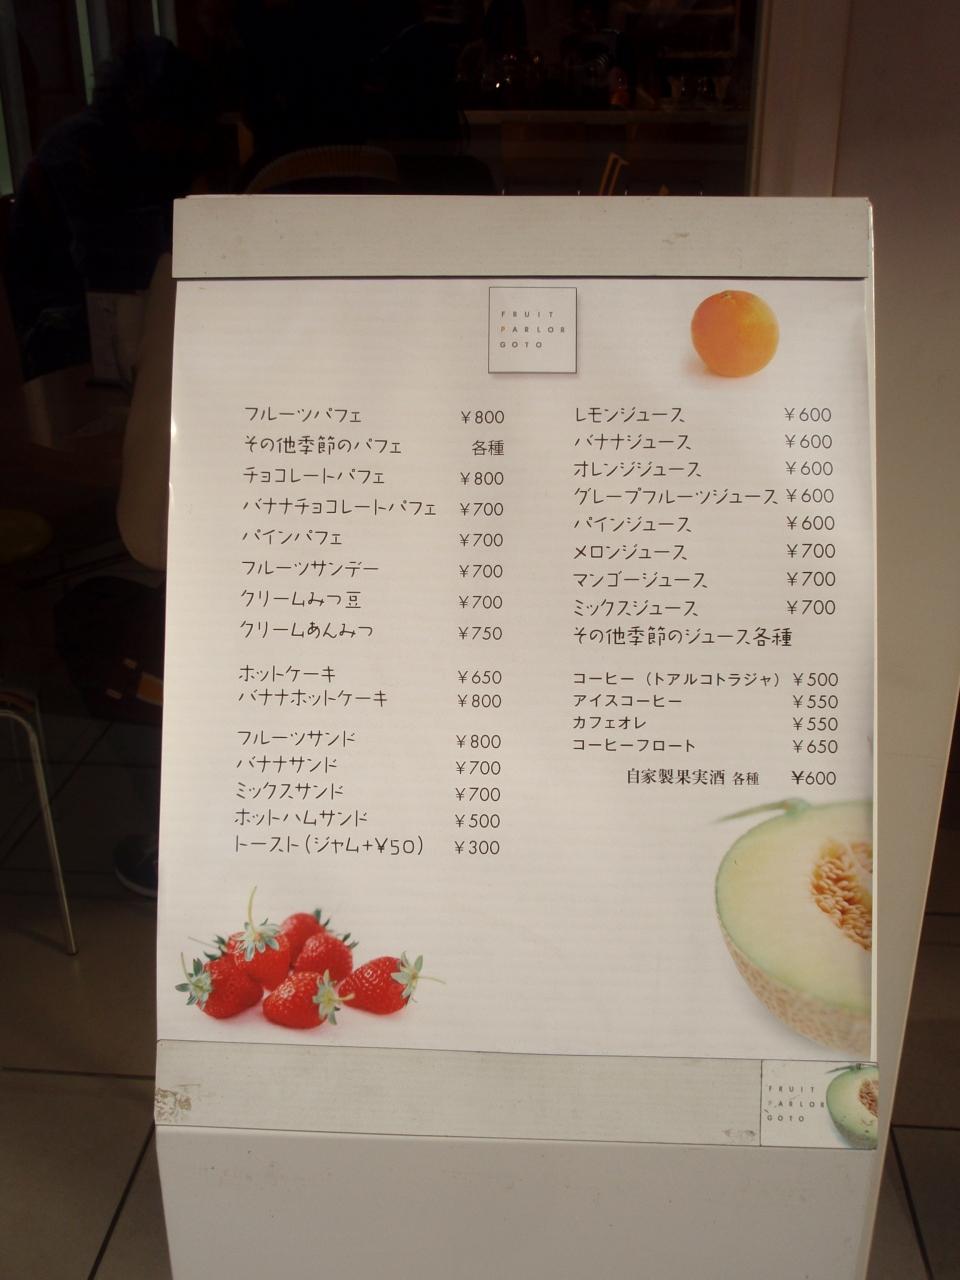 FRUIT
PARLOR
GOTO
フルーツパフェ ¥800
その他季節のパフェ 各種
チョコレートパフェ ¥800
バナナチョコレートパフェ ¥700
パインパフェ ¥700
フルーツサンデー ¥700
クリームみつ豆 ¥700
クリームあんみつ ¥750
ホットケーキ ¥650
バナナホットケーキ ¥800
フルーツサンド ¥800
バナナサンド ¥700
ミックスサンド ¥700
ホットハムサンド ¥500
トースト(ジャム+¥50) ¥300
レモンジュース ¥600
バナナジュース ¥600
オレンジジュース ¥600
グレープフルーツジュース ¥600
パインジュース ¥600
メロンジュース ¥700
マンゴージュース ¥700
ミックスジュース ¥700
その他季節のジュース各種
コーヒー（トアルコトラジャ） ¥500
アイスコーヒー ¥550
カフェオレ ¥550
コーヒーフロート ¥650
自家製果実酒 各種 ¥600
FRUIT
PARLOR
GOTO